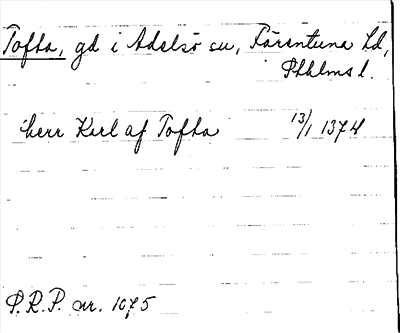 Tofta, gd i Adelsö sn, Färentuna hd,
Sthlms l.
herr Karl af Tofta 13/1 1374
P.R.P. nr. 1075